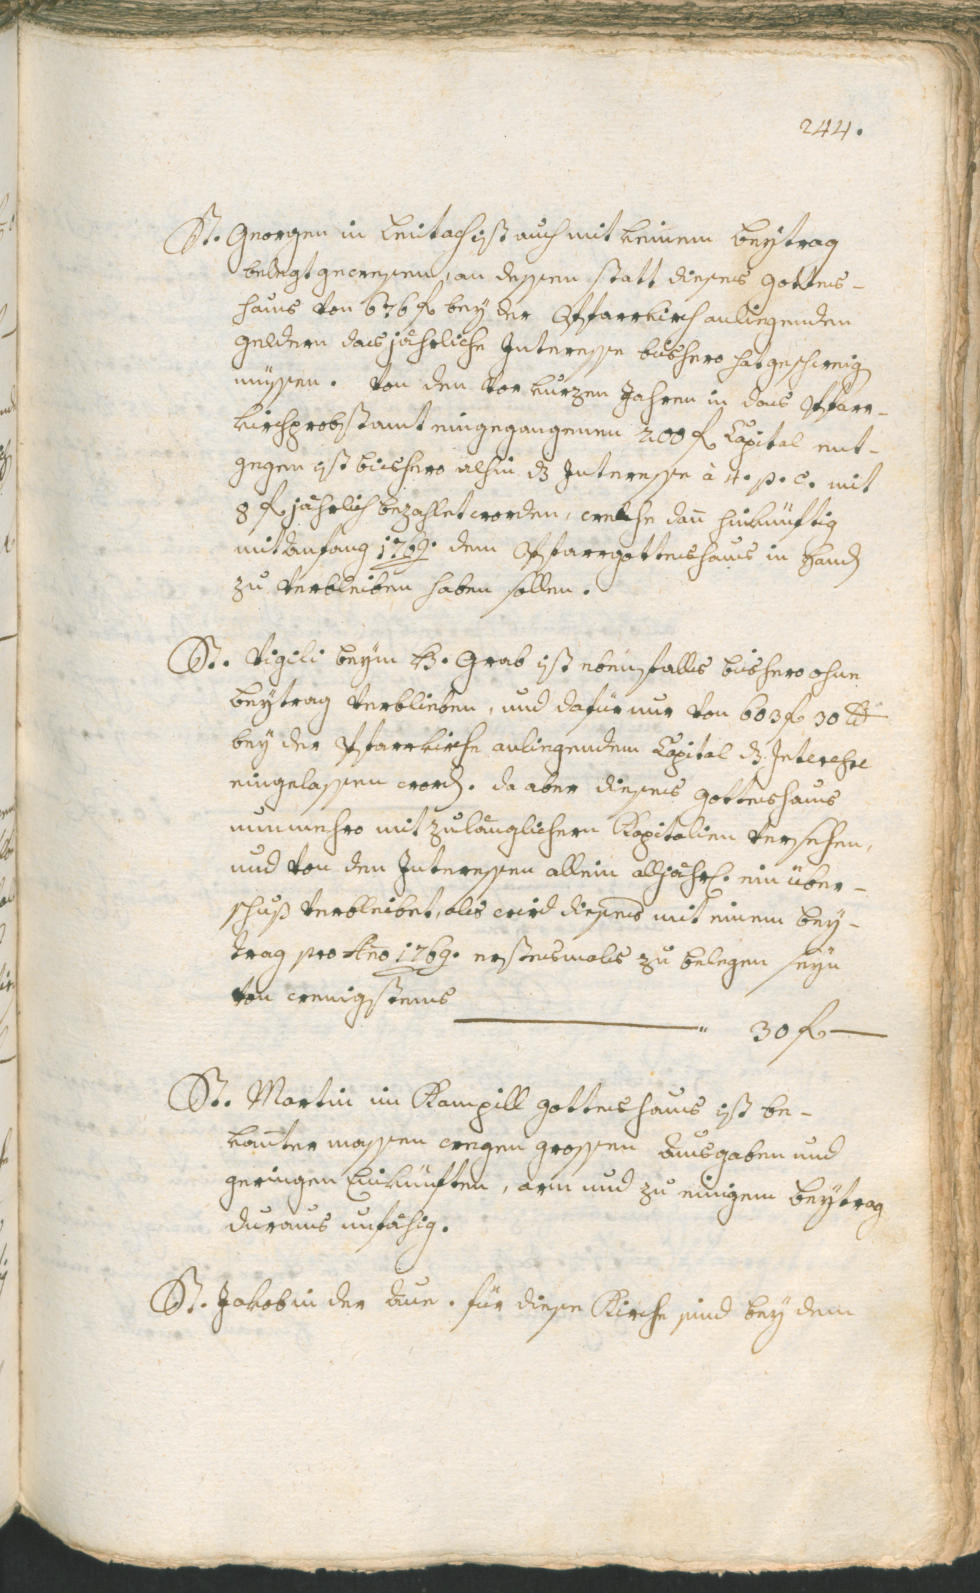 244.
St. Georgen in Leitach ist auch mit keinem beytrag
belegt gewesen, an dessen statt dieses Gottes-
haus von 676 fl bey der Pfarrkirch anligenden
geldern das jährliche Interesse bishero hat geschweig
müssen. Von den vor kurzen Jahren in das Pfarr-
kirchprobstamt eingegangenen 200 fl Capital ent-
gegen ist bishero alhin dz Interesse à 4. p. c. mit
8 fl jährlich bezahlet worden, welche dan hinkünftig
mit Anfang 1769. dem Pfarrgotteshaus in Hand
zu verbleiben haben sollen.
St. Vigili beym H. Grab ist ebenfalls bishero ohne
beytrag verblieben, und dafür nur von 603 fl 30 xr
bey der Pfarrkirche anligendem Capital dz Interesse
eingelassen word. da aber dieses Gotteshaus
nunmehro mit zulänglichern Kapitalien versehen,
und von den Interessen allein alljährl. ein über-
schuß verbleibet, als wird dieses mit einem bey-
trag pro Año 1769. erstesmals zu belegen seyn
von wenigstens
30 fl
St. Martin im Kampill Gotteshaus ist be-
kanter massen wegen grossen Ausgaben und
geringen Einkünften, arm und zu einigem beytrag
duraus unfähig.
St. Jakob in der Aue. für diese Kirche sind bey dem